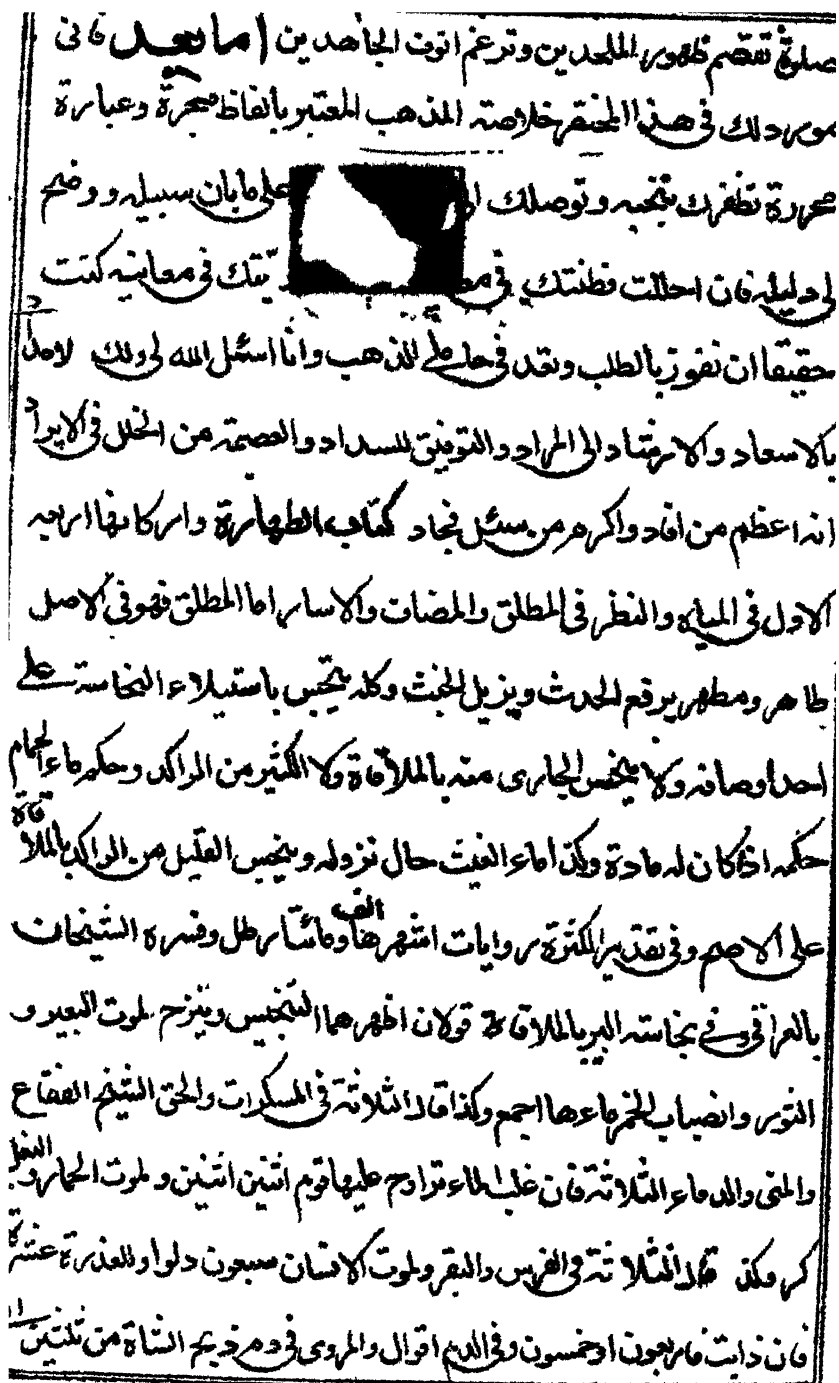 صلوة تقصم ظهور الملحدين وترغم انوف الجاحدين اما بعد فانى
مورد لك فى هذا المختصر خلاصة المذهب المعتبر بالفاظ محبرة وعبارة
محررة تظفرك بنخبه وتوصلك على ما بان سبيله ووضح
لى دليله فان احللت فطنتك فى رويتك فى معانيه كنت
حقيقا ان تفوز بالطلب وتعد فى حاملى المذهب وانا اسئل الله لى ولك الامداد
بالاسعاد والارشاد الى المراد والتوفيق للسداد والعصمة من الخلل فى الايراد
انه اعظم من افاد واكرم من سئل فجاد كتاب الطهارة واركانها اربعة
الاول فى المياه والنظر فى المطلق والمضاف والاسار اما المطلق فهو فى الاصل
طاهر ومطهر يرفع الحدث ويزيل الخبث وكله ينجس باستيلاء النجاسة على
احد اوصافه ولا ينجس الجارى منه بالملاقاة ولا الكثير من الراكد وحكم ماء الحمام
حكمه اذا كان له مادة وكذا ماء الغيث حال نزوله وينجس القليل من الراكد بالملاقاة
على الاصح وفى تقدير الكثرة روايات اشهرها الف ومائتا رطل وفسره الشيخان
بالعراقى وفى نجاسة البير بالملاقاة قولان اظهرهما التنجيس وينزح لموت البعير و
الثور وانصباب الخمر ماءها اجمع وكذا قال الثلاثة فى المسكرات والحق الشيخ الفقاع
والمنى والدماء الثلاثة فان غلب الماء تراوح عليها قوم اثنين اثنين ولموت الحمار والبغل
كر وكذا قال الثلاثة فى الفرس والبقر ولموت الانسان سبعون دلوا وللعذرة عشرة
فان ذابت فاربعون او خمسون وفى الدم اقوال والمروى فى دم ذبح الشاة من ثلثين